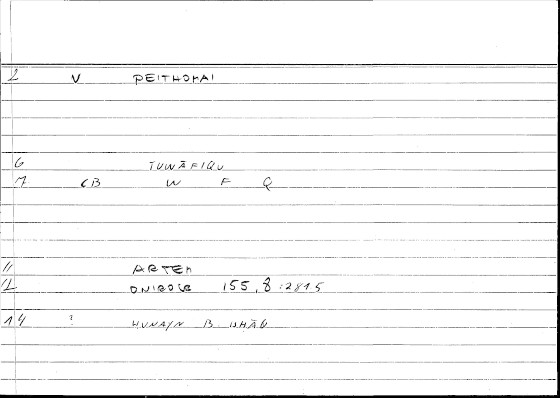 2 V PEITHOMAI
6 TUWĀFIQU
7 CB W F Q
11 ARTEM
12 ONIROCR 155,8:2815
14 ? HUNAYN B. ISHĀQ